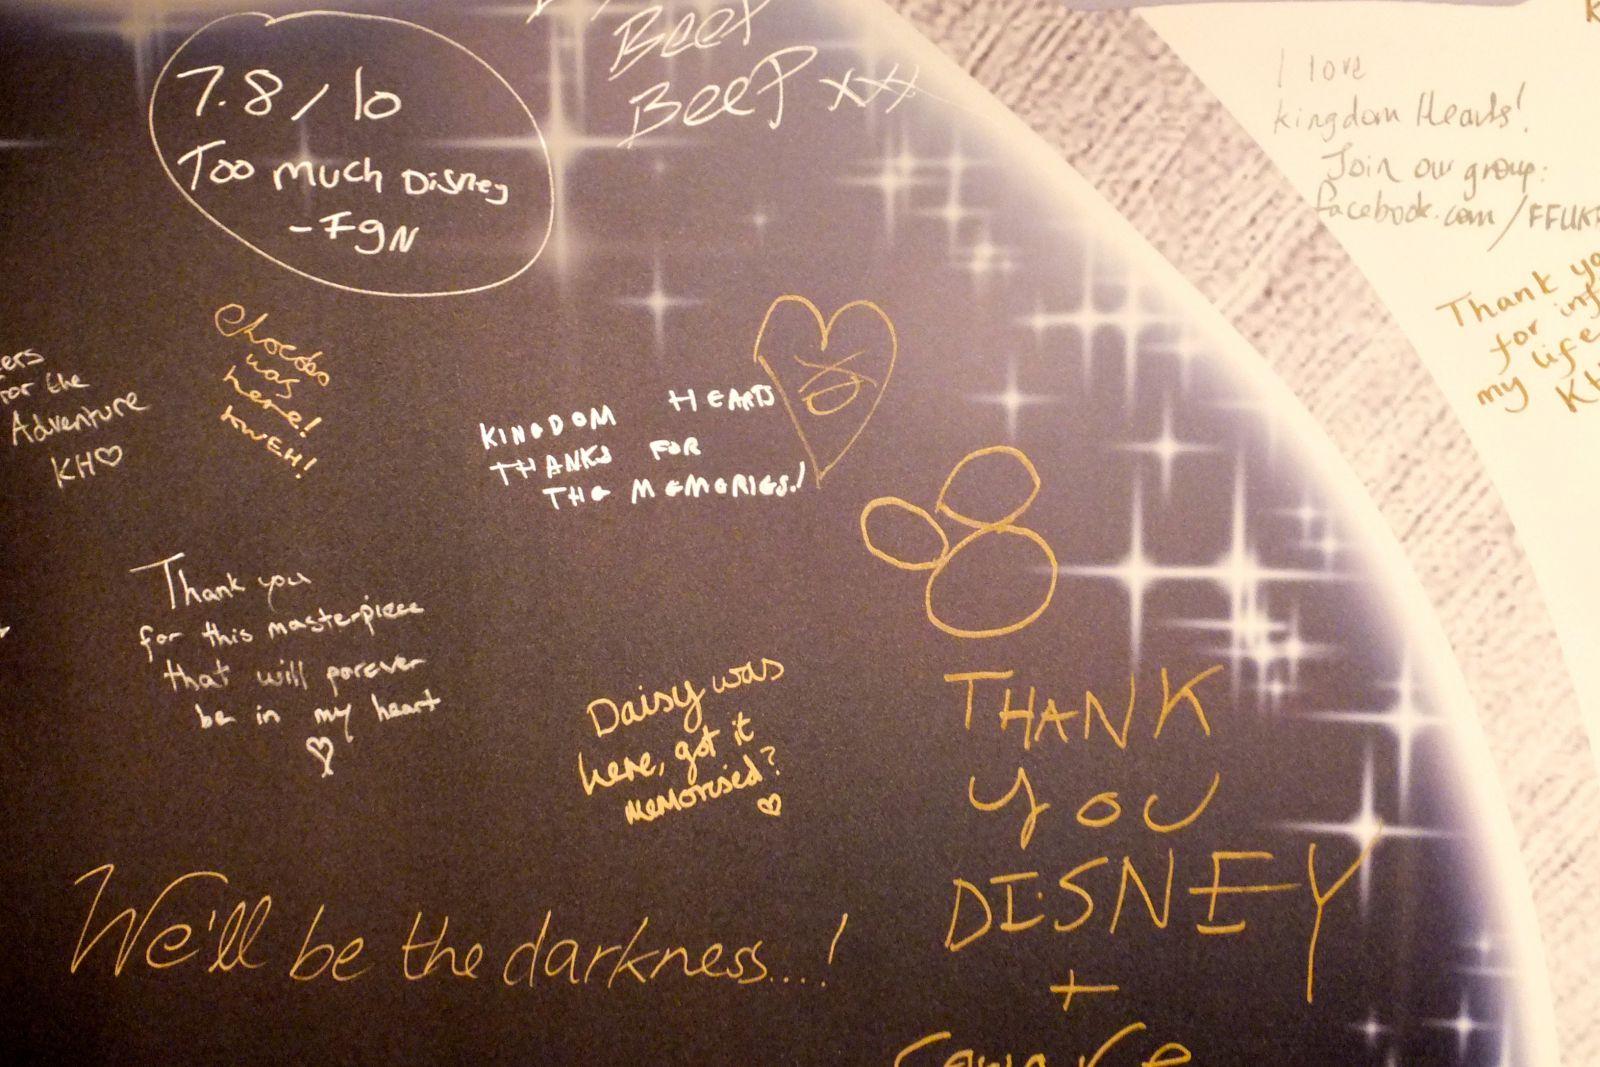 Beep
Beep xxx
7.8/10
Too much Disney
-IgN
I love
kingdom Hearts!
Join our group:
facebook.com/FFUK
Thank yo
for
my life
KH
Chocobo
was
here!
KWEH!
for the
Adventure
KH♡
KINGDOM HEARTS
THANKS FOR
THE MEMORIES!
Thank you
for this masterpiece
that will forever
be in my heart
♡
Daisy was
here, got it
memorised?
♡
THANK
YOU
DISNEY
+
Square
We'll be the darkness...!